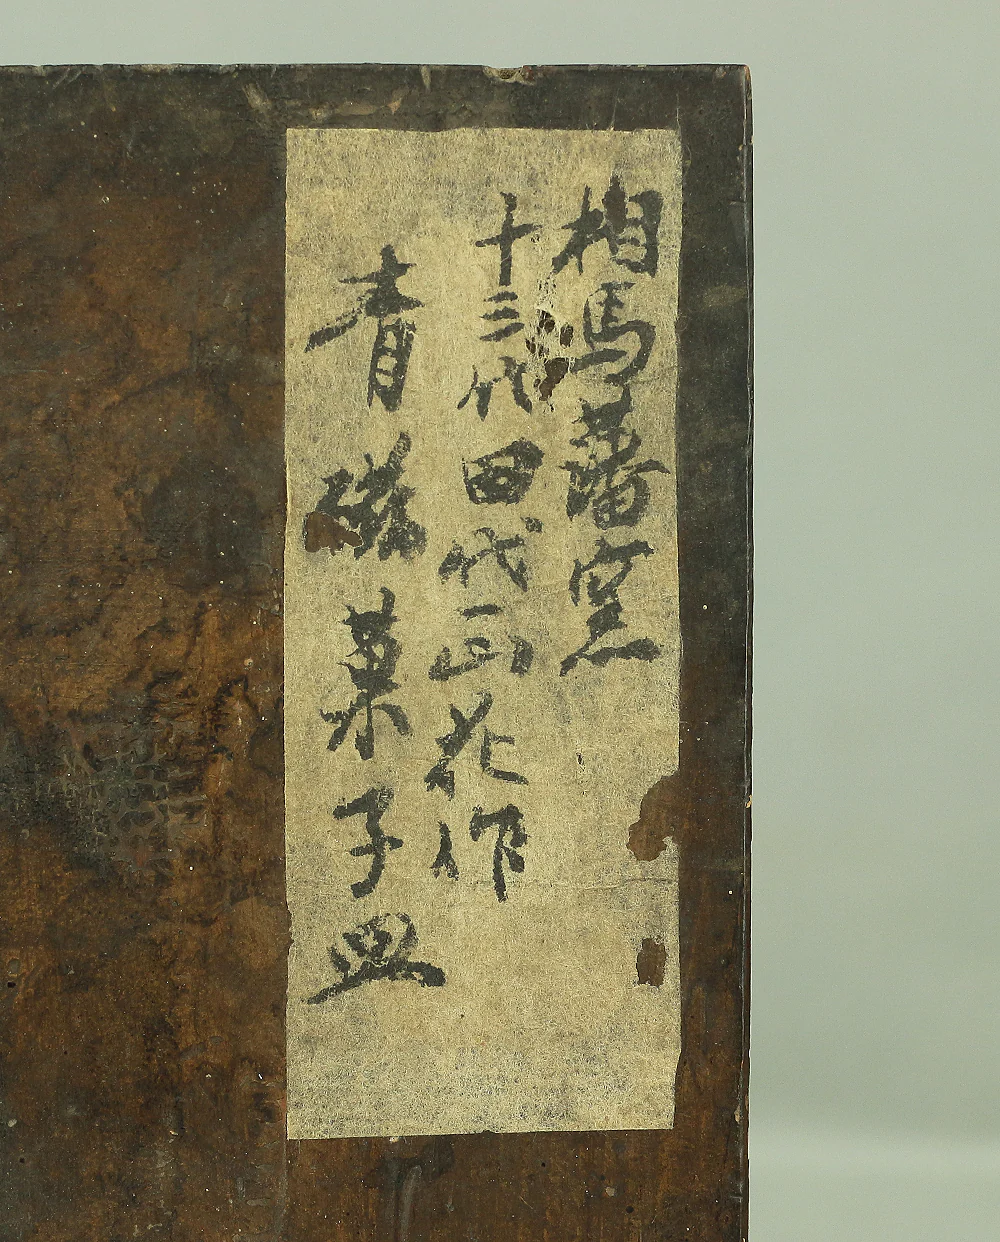 相馬藩窯
十三代田代正花作
青磁菓子皿